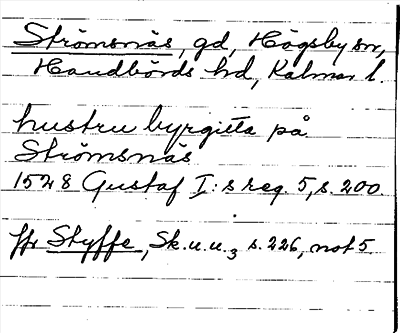 Strömsnäs, gd, Högsby sn,
Handbörds hd, Kalmar l.
hustru byrgitta på
Strömsnäs
1528 Gustaf I:s reg. 5, s. 200.
jfr Styffe, Sk.u.u.3 s. 226, not 5.